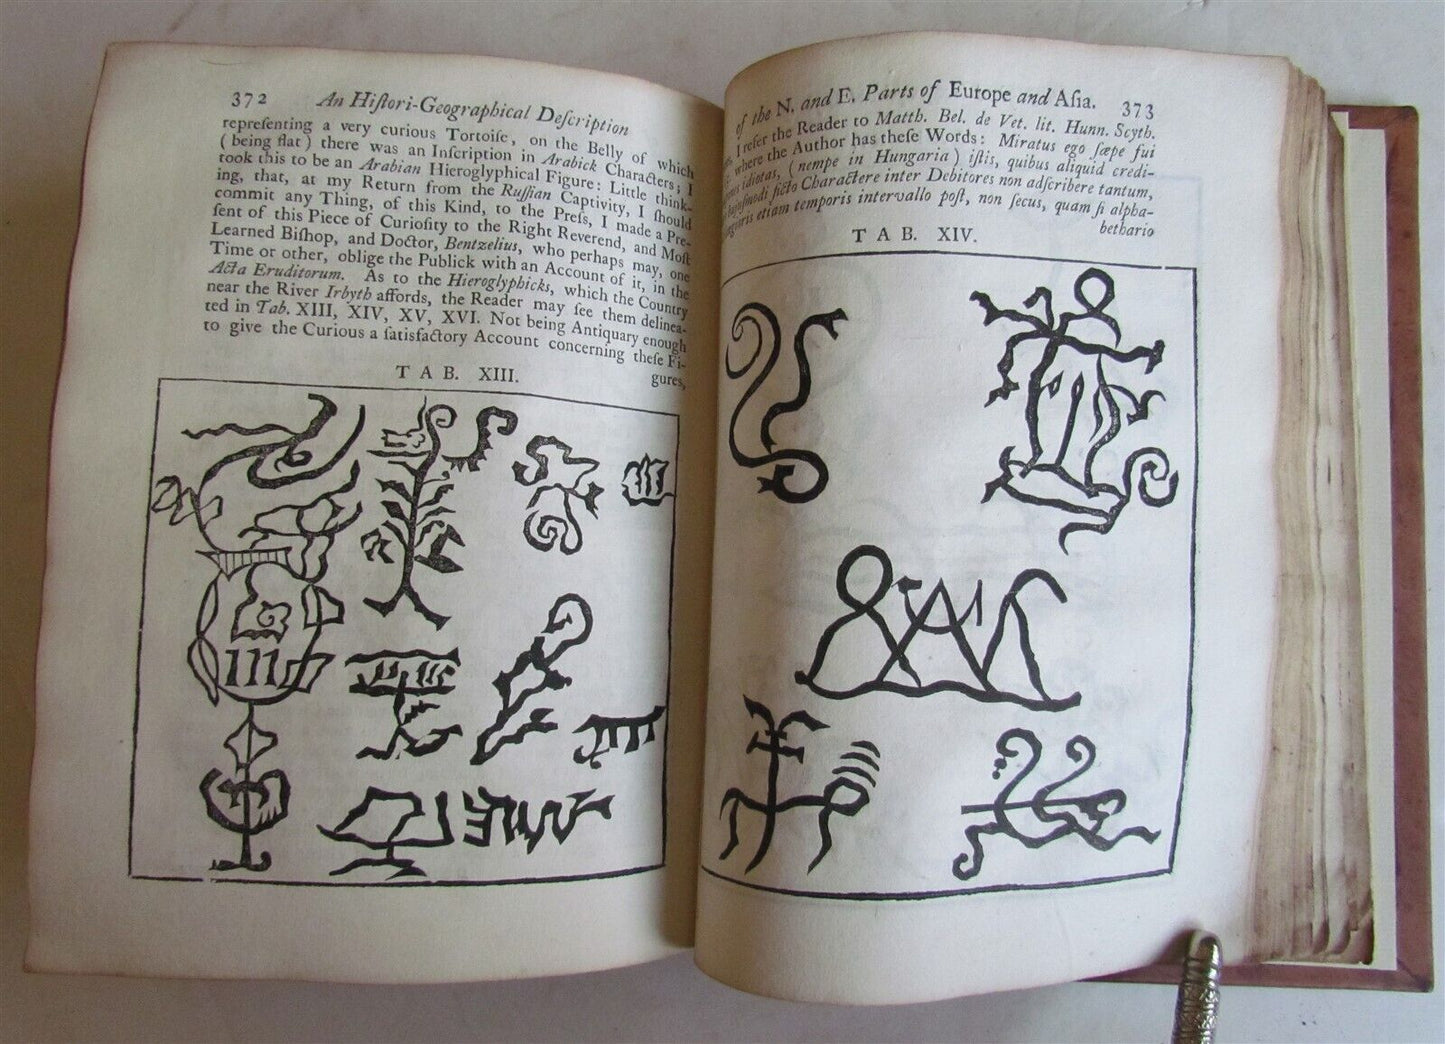 372 An Hiſtori-Geographical Deſcription
repreſenting a very curious Tortoiſe, on the Belly of which
(being flat) there was an Inſcription in Arabick Characters; I
took this to be an Arabian Hieroglyphical Figure: Little think-
ing, that, at my Return from the Ruſſian Captivity, I ſhould
commit any Thing, of this Kind, to the Preſs, I made a Pre-
ſent of this Piece of Curioſity to the Right Reverend, and Moſt
Learned Biſhop, and Doctor, Bentzelius, who perhaps may, one
Time or other, oblige the Publick with an Account of it, in the
Acta Eruditorum. As to the Hieroglyphicks, which the Country
near the River Irbyth affords, the Reader may ſee them delinea-
ted in Tab. XIII, XIV, XV, XVI. Not being Antiquary enough
to give the Curious a ſatisfactory Account concerning theſe Fi-
gures,
TAB. XIII.
of the N. and E. Parts of Europe and Aſia. 373
I refer the Reader to Matth. Bel. de Vet. lit. Hunn. Scyth.
where the Author has theſe Words: Miratus ego ſæpe fui
idiotas, (nempe in Hungaria) iſtis, quibus aliquid credi-
ficto Charactere inter Debitores non adſcribere tantum,
etiam temporis intervallo poſt, non ſecus, quam ſi alpha-
bethario
TAB. XIV.